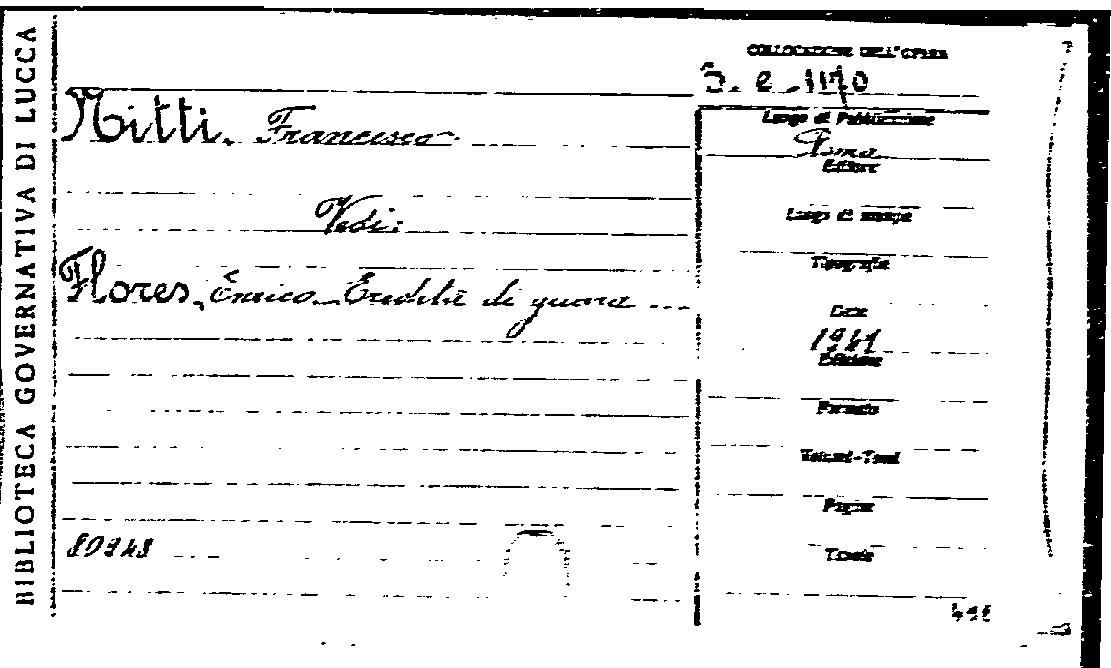 BIBLIOTECA GOVERNATIVA DI LUCCA
COLLOCAZIONE DELL'OPERA
Nitti, Francesco
Vedi:
Flores, Enrico Eredità di guerra ...
Luogo di Pubblicazione
Roma
Editore
Luogo di stampa
Tipografia
Data
Edizione
Formato
Volumi-Tomi
Pagine
Tavole